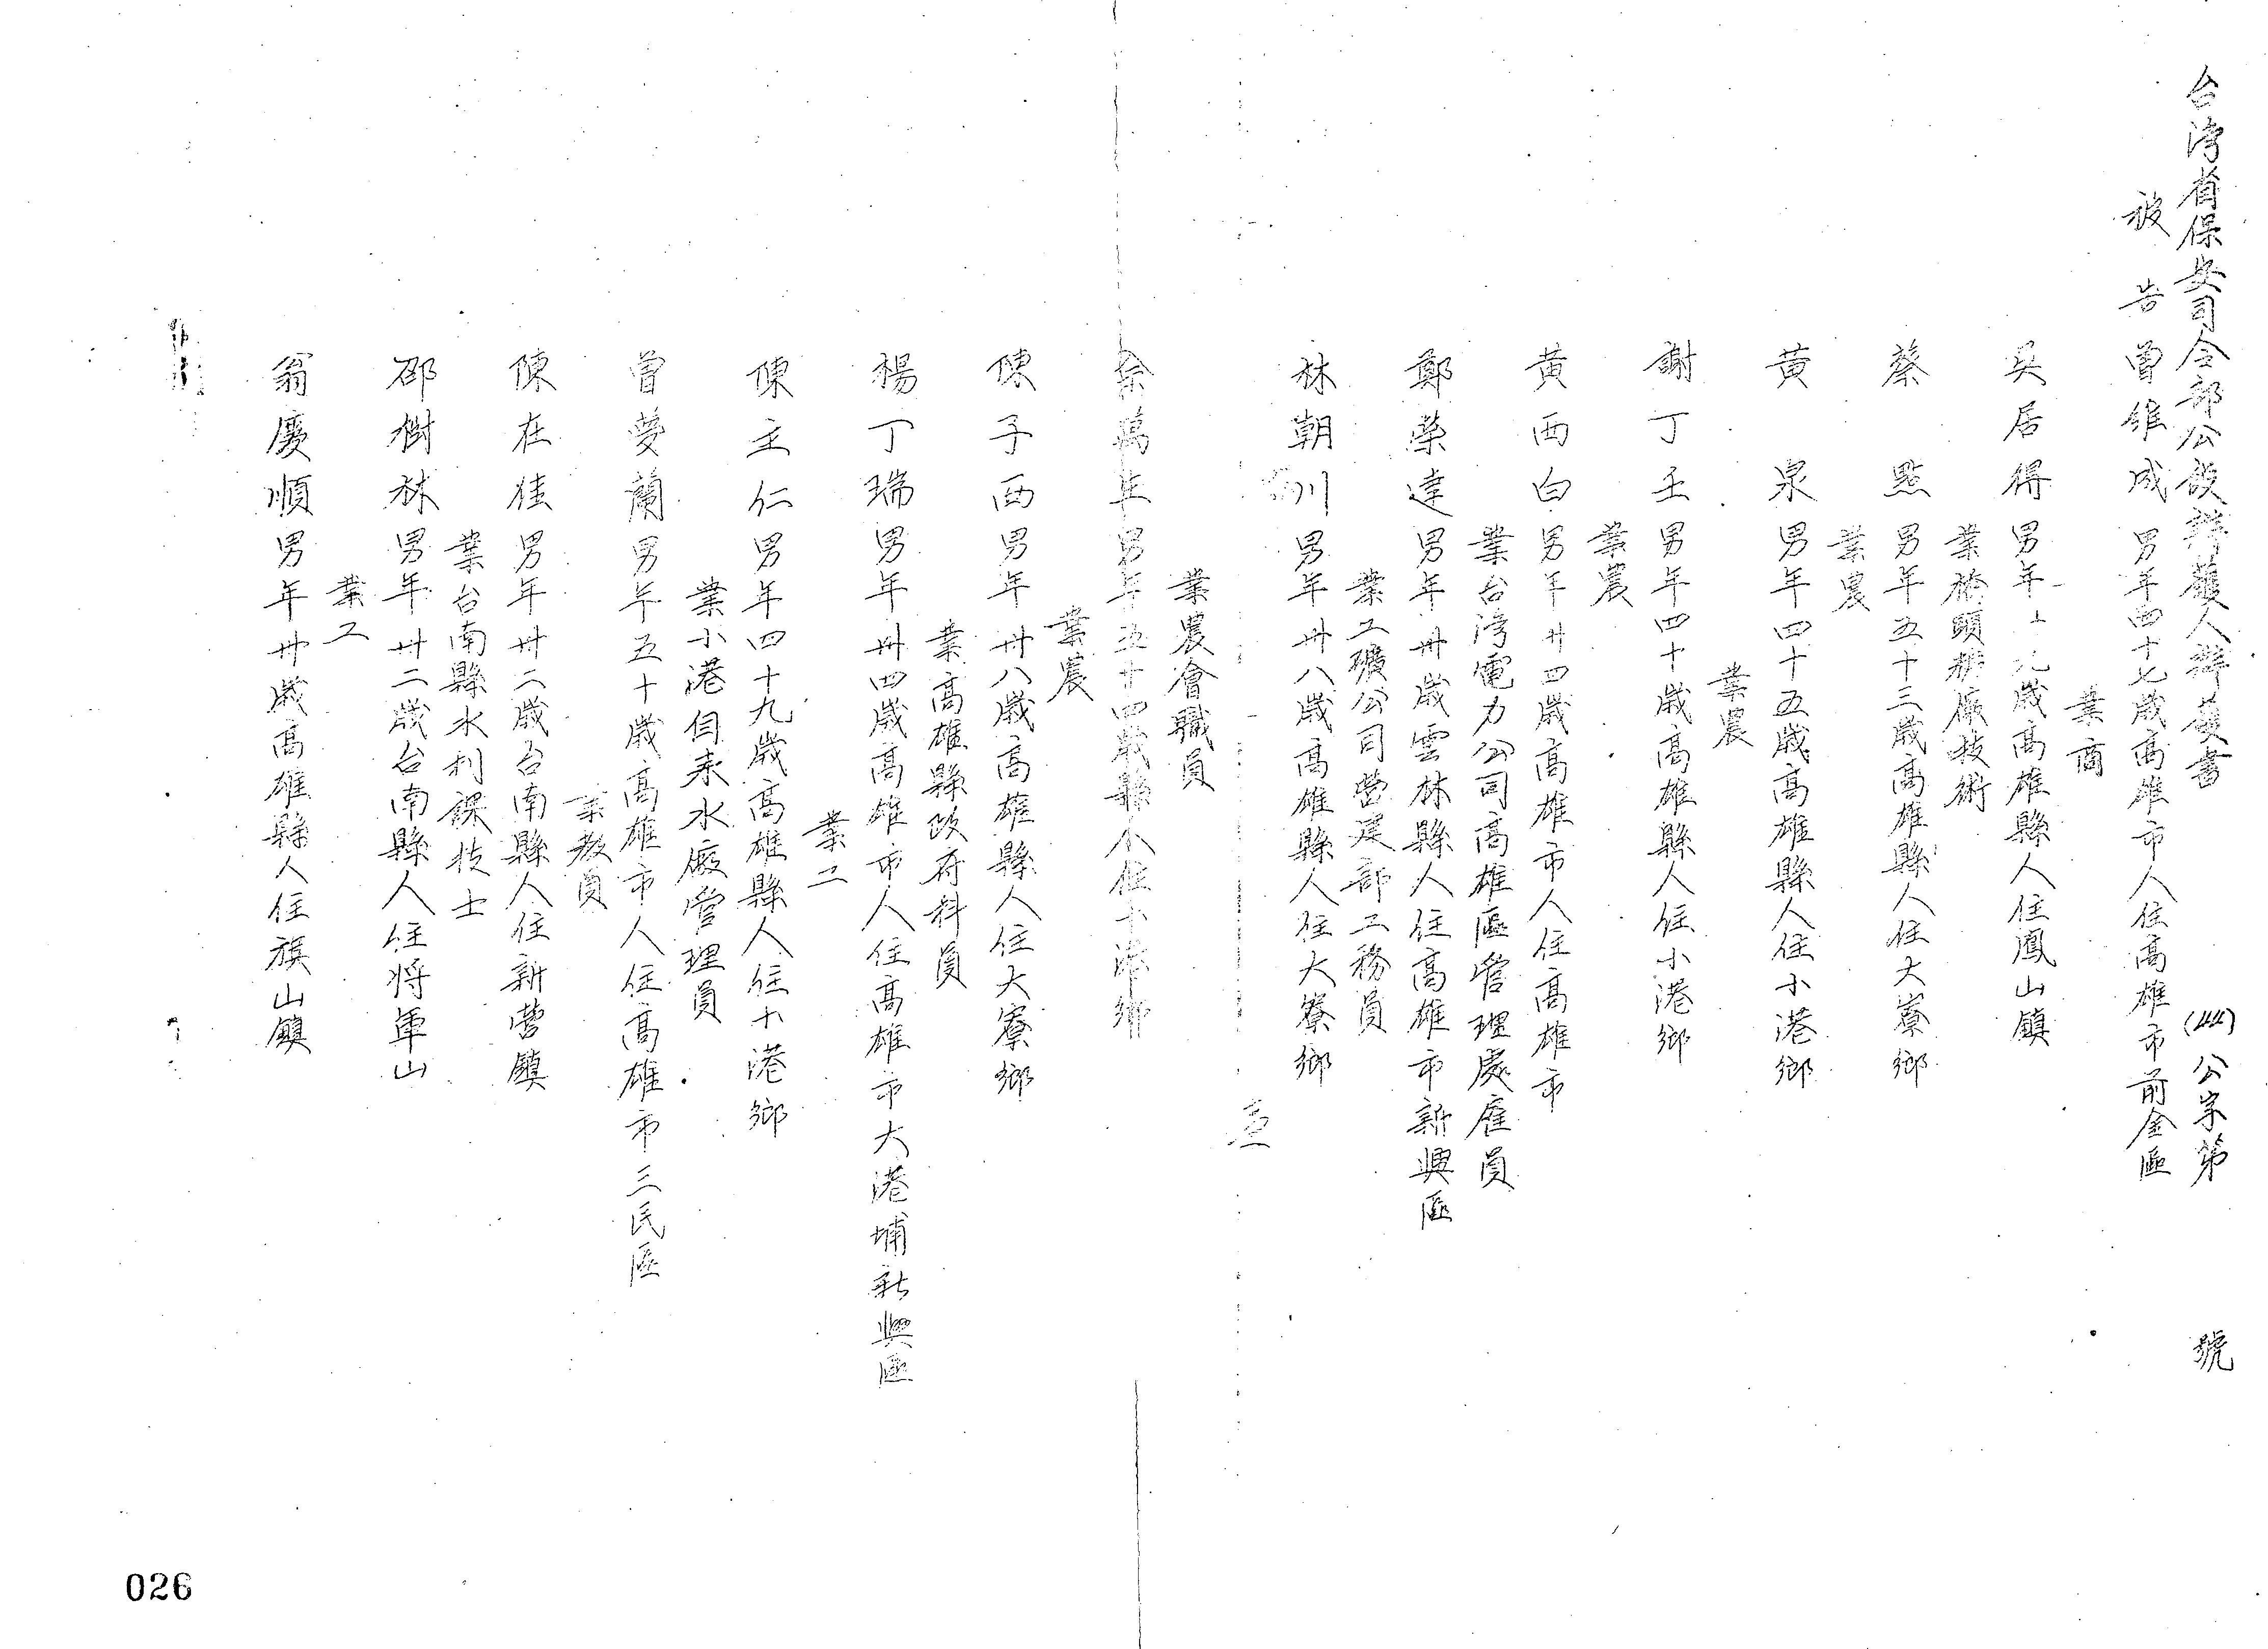 台湾省保安司令部公設辯護人辯護書 (44)公字第 號
被告曾維成 男年四十七歲高雄市人住高雄市前金區
業商
吳居得 男年 九歲高雄縣人住鳳山鎮
業 頭 廠技術
蔡點 男年五十三歲高雄縣人住大寮鄉
業農
黃泉 男年四十五歲高雄縣人住小港鄉
業農
謝丁王 男年四十歲高雄縣人住小港鄉
業農
黃西白 男年廿四歲高雄市人住高雄市
業台湾電力公司高雄區管理處雇員
鄭榮達 男年卅歲雲林縣人住高雄市新興區
業工礦公司營建部工務員
林朝川 男年卅八歲高雄縣人住大寮鄉
業農會職員
余萬生 男年五十四歲縣人住小港鄉
業農
陳子西 男年卅八歲高雄縣人住大寮鄉
業高雄縣政府科員
楊丁瑞 男年卅四歲高雄市人住高雄市大港埔新興區
業工
陳主仁 男年四十九歲高雄縣人住小港鄉
業小港自來水廠管理員
曾夢蘭 男年五十歲高雄市人住高雄市三民區
業教員
陳在 男年卅二歲台南縣人住新營鎮
業台南縣水利課技士
邵樹林 男年卅二歲台南縣人住將軍山
業工
翁慶順 男年卅歲高雄縣人住旗山鎮
026